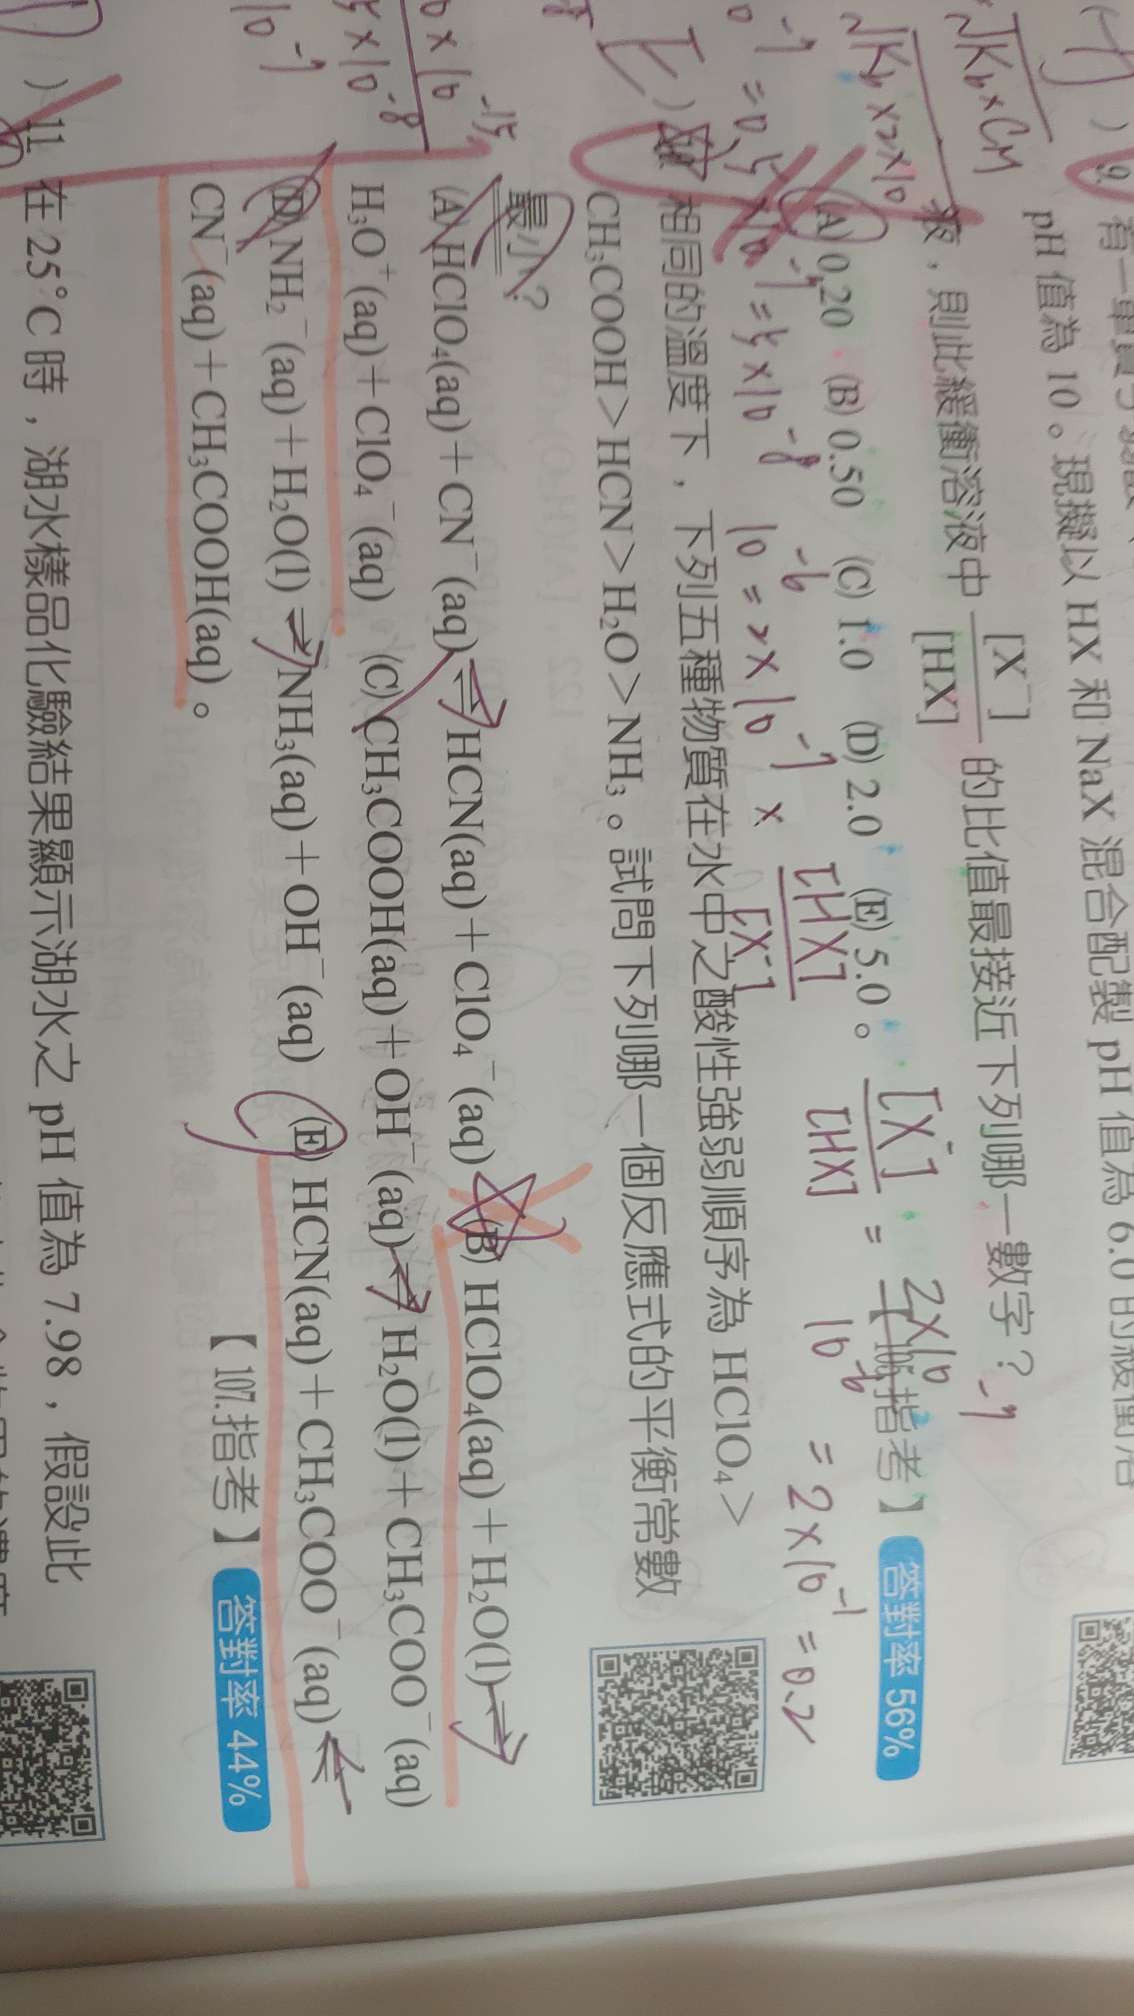 ) 9. 有一單質子
pH 值為 10。現擬以 HX 和 NaX 混合配製 pH 值為 6.0 的緩衝溶
液，則此緩衝溶液中 [X⁻]/[HX] 的比值最接近下列哪一數字？
(A) 0.20 (B) 0.50 (C) 1.0 (D) 2.0 (E) 5.0。 指考】 答對率 56%
√Kb×CM
√Kb×2×10
[X⁻]/[HX] = 2×10⁻⁷/10⁻⁶ = 2×10⁻¹ = 0.2
10⁻⁶ = 2×10⁻⁷ × [HX]/[X⁻]
= 0.5×10⁻⁷ = 5×10⁻⁸
) 相同的溫度下，下列五種物質在水中之酸性強弱順序為 HClO₄＞
CH₃COOH＞HCN＞H₂O＞NH₃。試問下列哪一個反應式的平衡常數
最小？
(A) HClO₄(aq)＋CN⁻(aq)⇌HCN(aq)＋ClO₄⁻(aq) (B) HClO₄(aq)＋H₂O(l)⇌
H₃O⁺(aq)＋ClO₄⁻(aq) (C) CH₃COOH(aq)＋OH⁻(aq)⇌H₂O(l)＋CH₃COO⁻(aq)
(D) NH₂⁻(aq)＋H₂O(l)⇌NH₃(aq)＋OH⁻(aq) (E) HCN(aq)＋CH₃COO⁻(aq)⇌
CN⁻(aq)＋CH₃COOH(aq)。 【107.指考】 答對率 44%
) 11. 在 25°C 時，湖水樣品化驗結果顯示湖水之 pH 值為 7.98，假設此